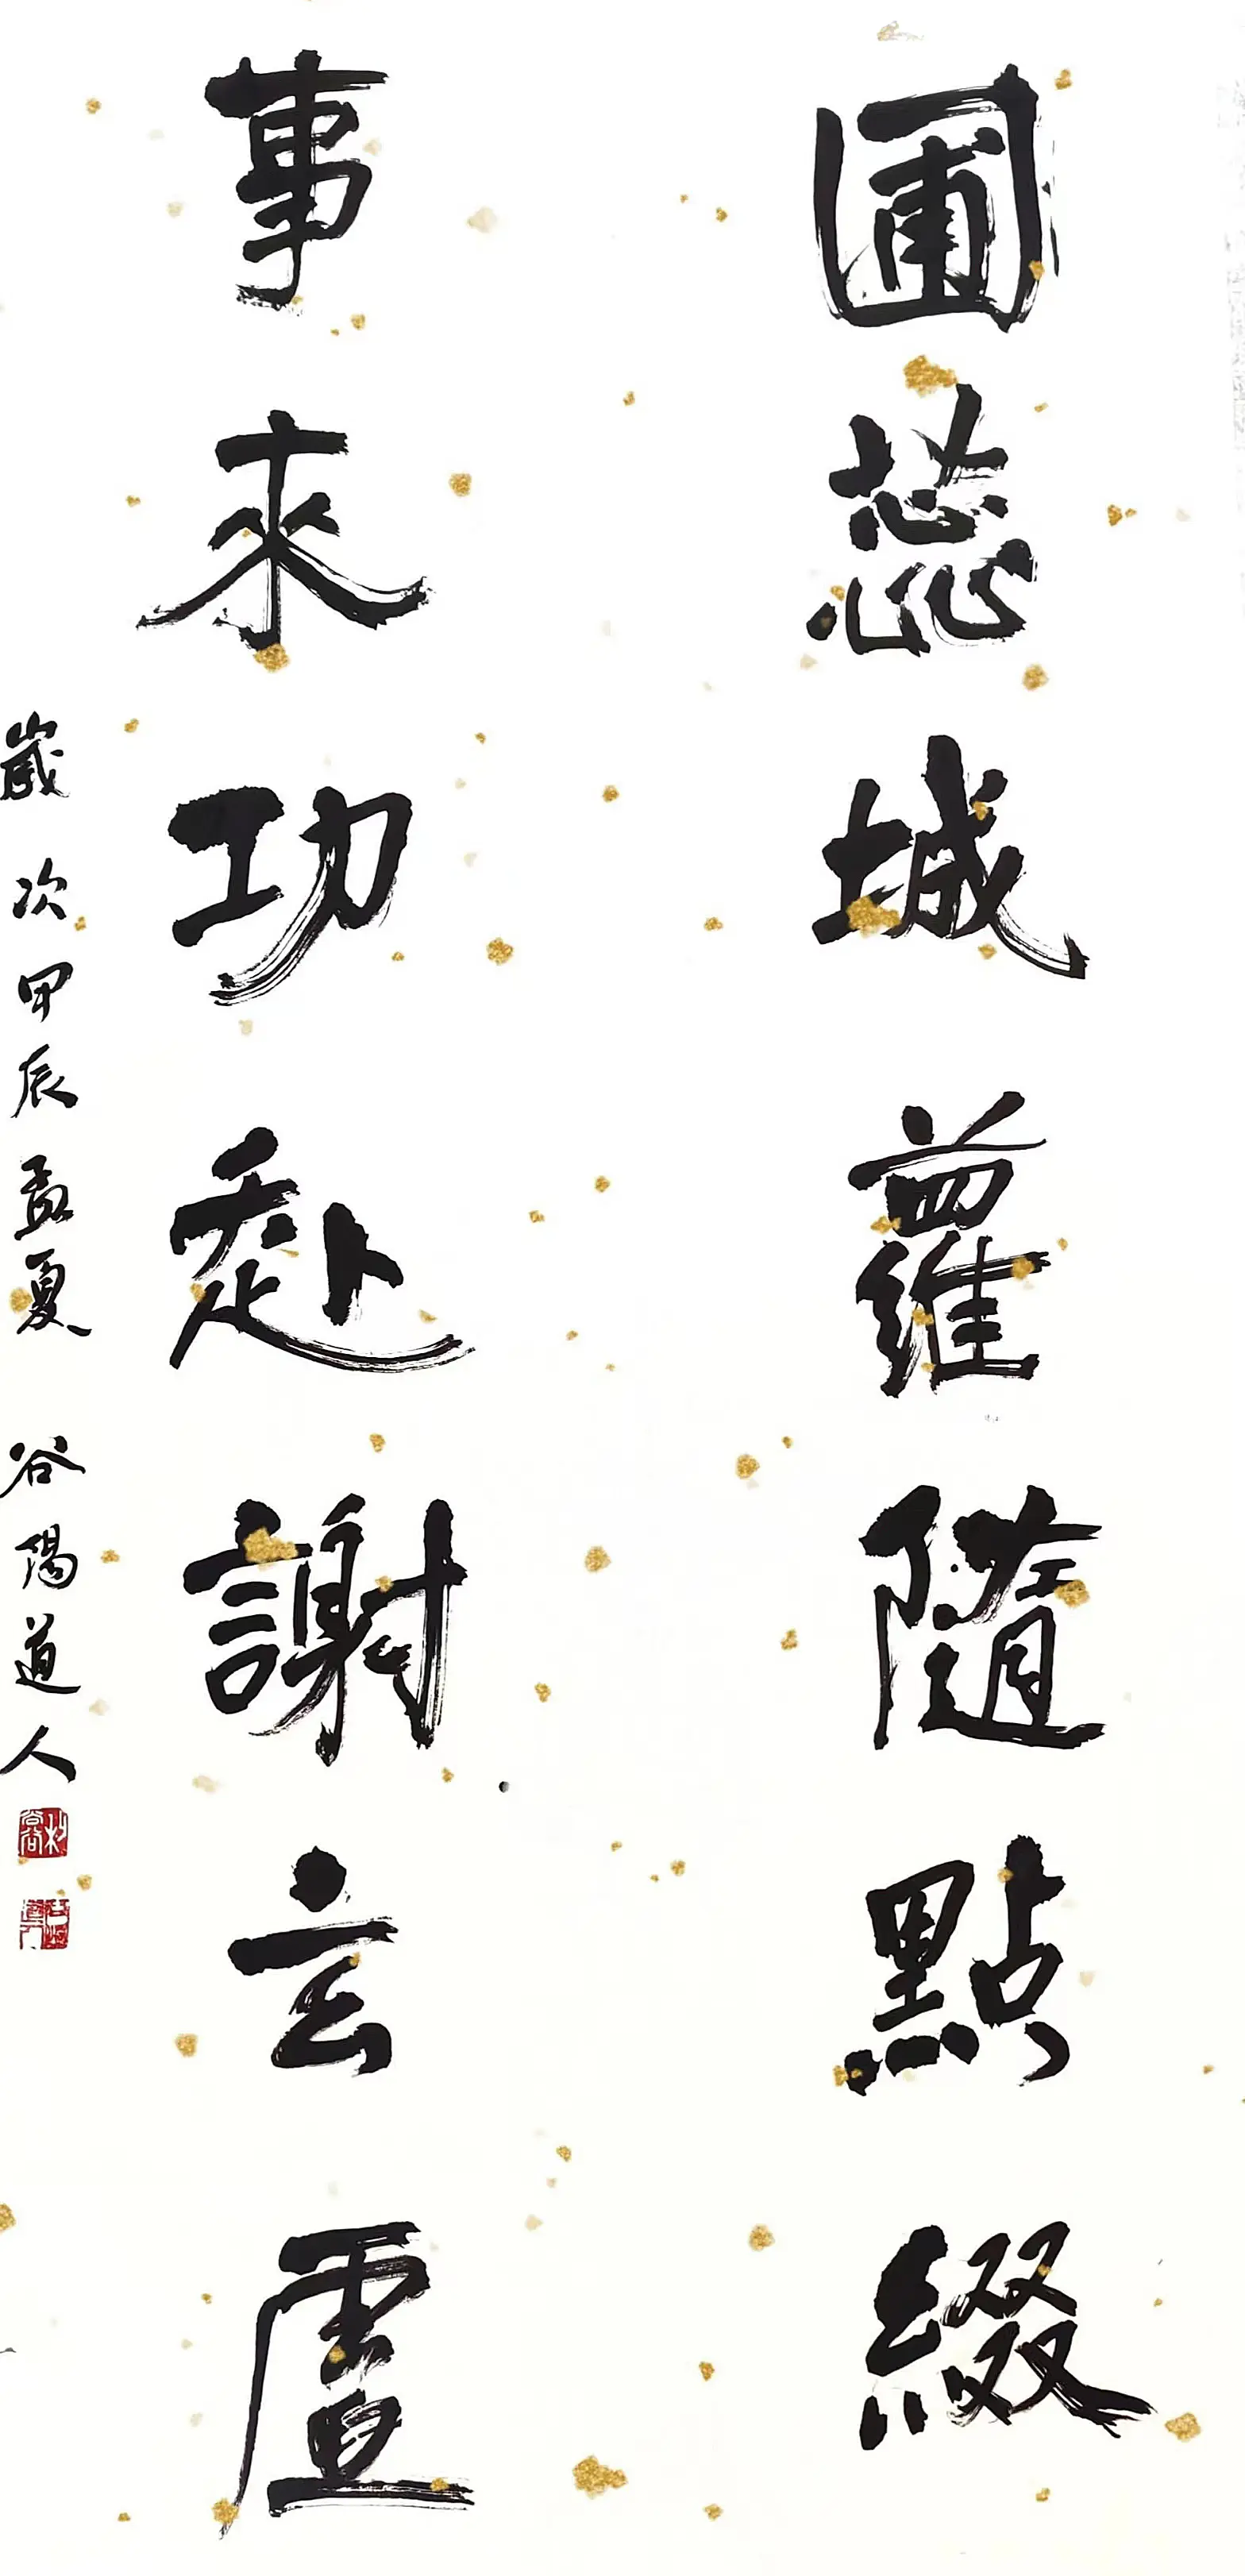 圃蕊城蘿隨點綴
事來功赴謝玄虛
歲次甲辰孟夏 谷陽道人